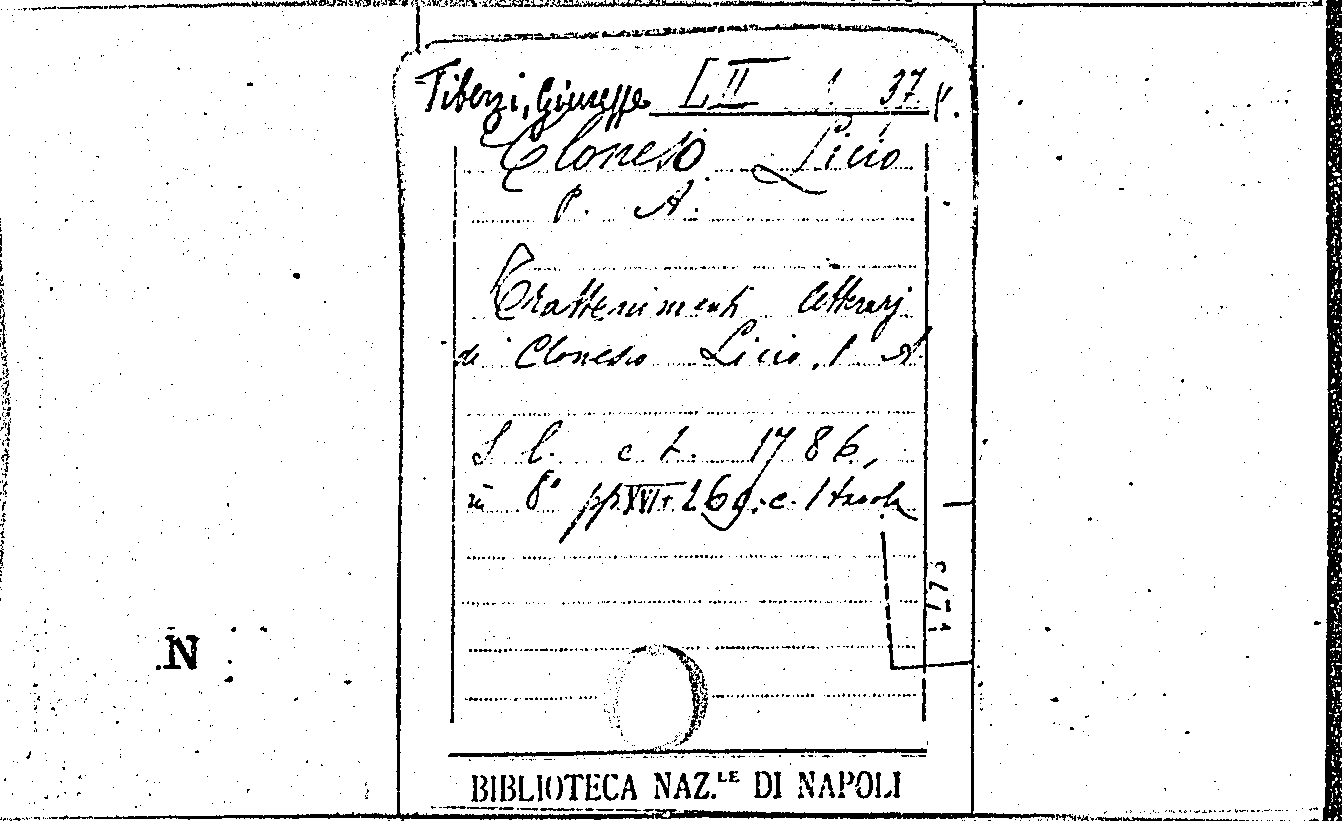 Tiberzi, Giuseppe L II ! 37
Cloneso Licio
P. A.
Trattenimenti letterarj
di Cloneso Licio, P A.
S l. e t. 1786,
in 8° pp. XVI + 269. c. 1 tavola
N
BIBLIOTECA NAZ.LE DI NAPOLI